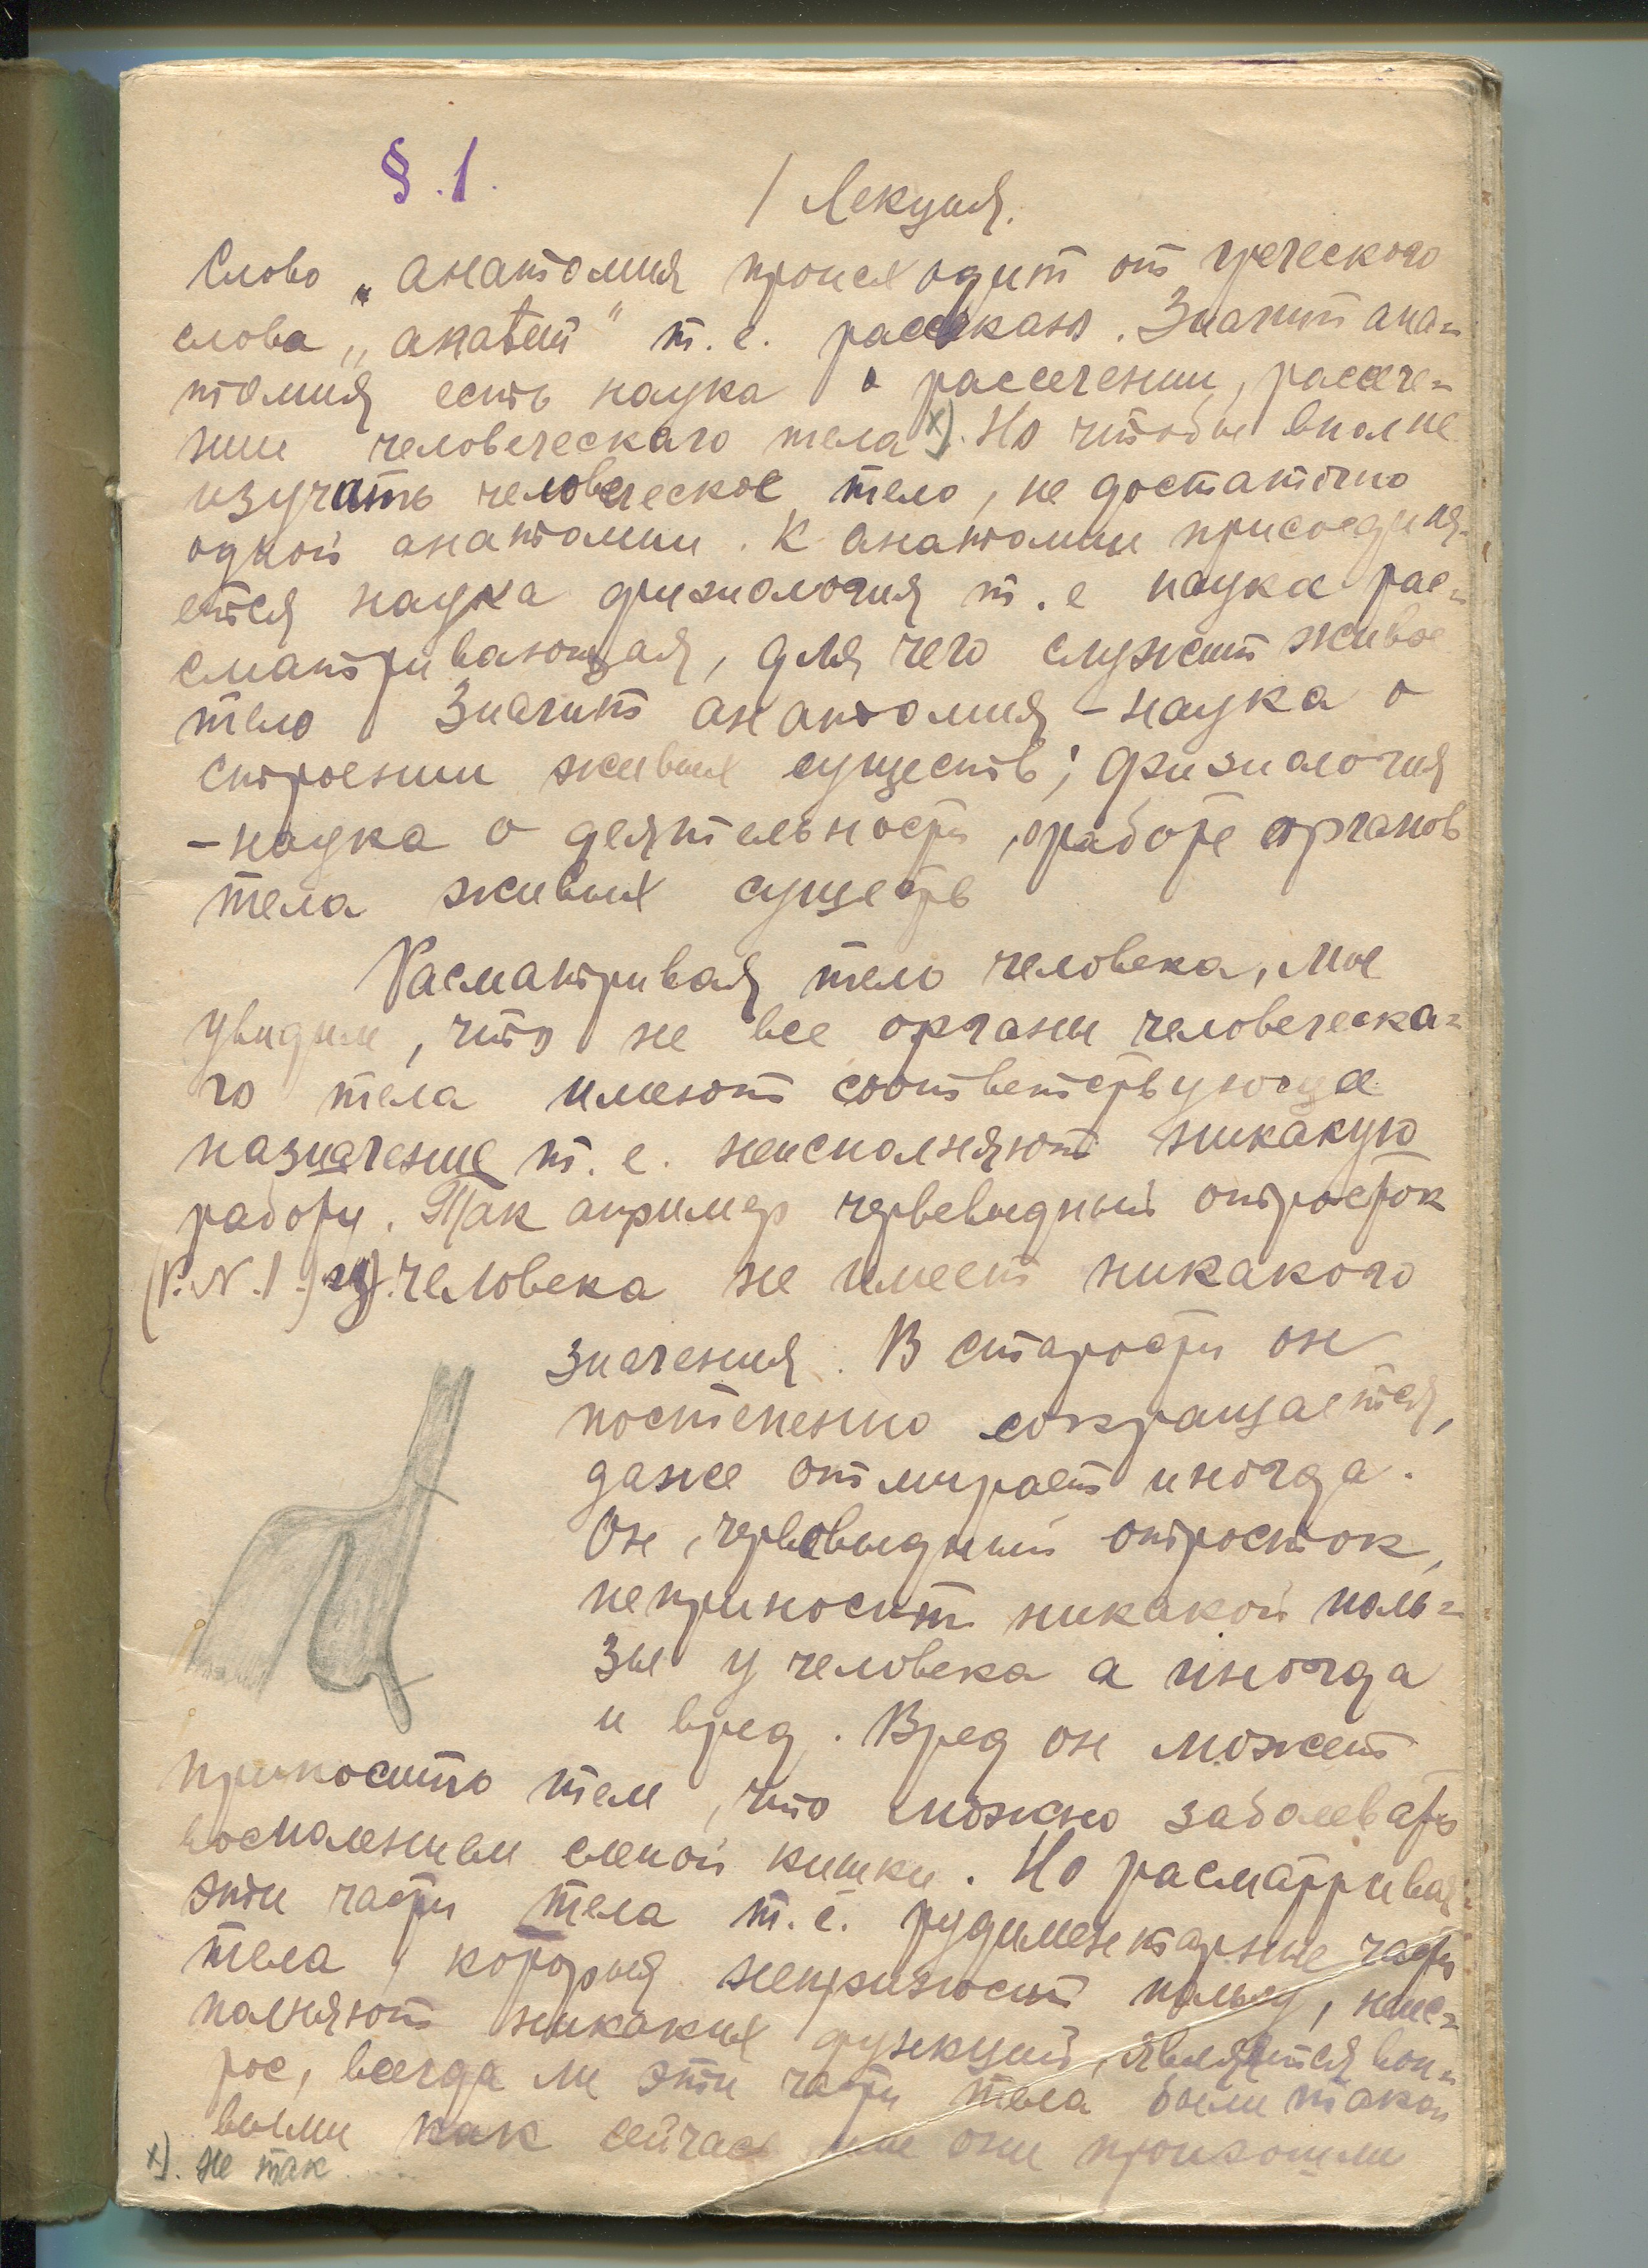 §.1.
1 Лекция.
Слово „анатомия происходит от греческого
слова „анатет" т.е. рассекаю. Значит ана-
томия есть наука о рассечении, рассече-
нии человеческаго тела х). Но чтобы вполне
изучать человеческое тело, не достаточно
одной анатомии. К анатомии присоединя-
ется наука физиология т.е наука рас-
сматривающая, для чего служит живое
тело Значит анатомия - наука о
строении живых существ; физиология
- наука о деятельности, о работе органов
тела живых существ
Расматривая тело человека, мы
увидим, что не все органы человеческа-
го тела имеют соответствующее
назначение т.е. неисполняют никакую
работу. Так апример червевидный отросток
(Р.N.1.) у человека не имеет никакого
значения. В старости он
постепенно сокращается,
даже отмирает иногда.
Он, червевидный отросток,
неприносит никакой поль-
зы у человека а иногда
и вред. Вред он может
приносить тем, что можно заболевать
воспалением слепой кишки. Но расматривая
эти части тела т.е. рудиментарные части
тела, которыя неприносит пользу, неис-
полняют никаких функций, является воп-
рос, всегда ли эти части тела были тако-
выми как сейчас или они произошли
х). не так